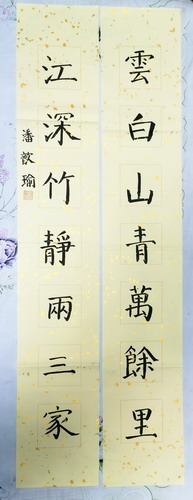 雲白山青萬餘里
江深竹靜兩三家
潘敏瑜